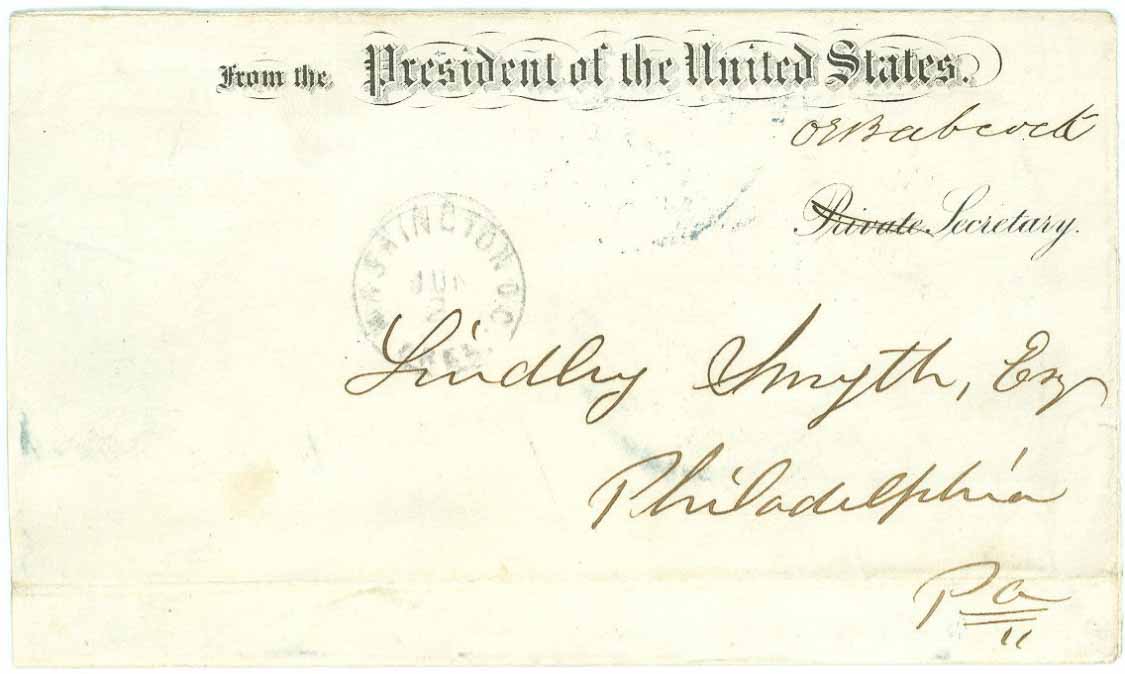 From the President of the United States.
OE Babcock
Private Secretary.
WASHINGTON D.C.
Lindley Smyth, Esq
Philadelphia
Pa